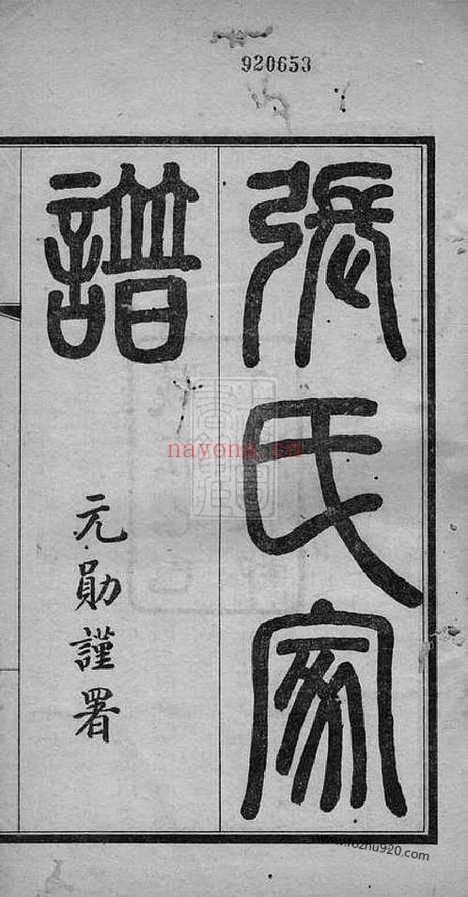 920653
張氏家
譜
元勛謹署
nayona.cn
www.fozhu920.com